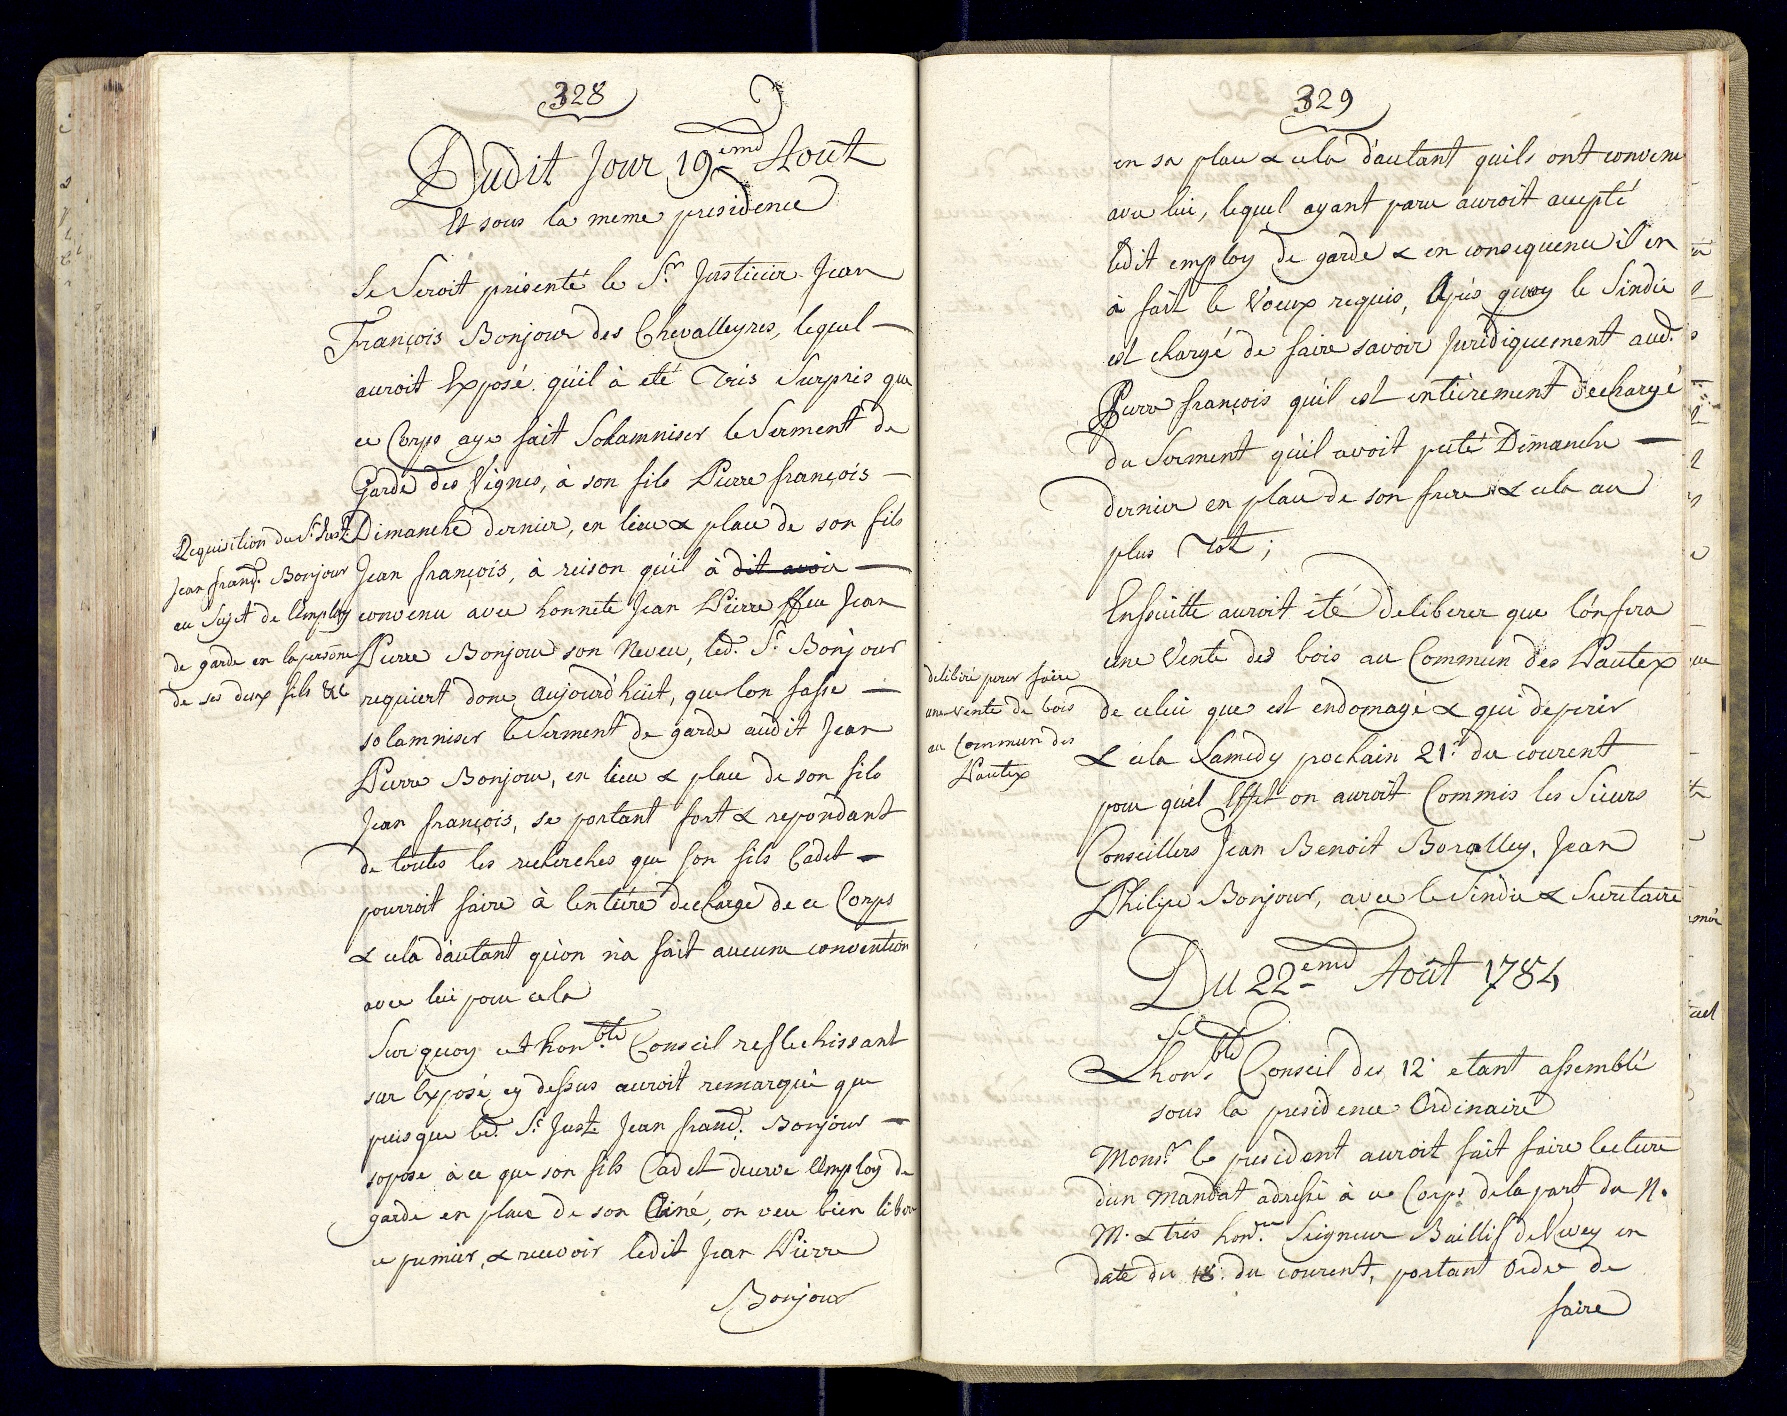 328
Dudit Jour 19eme Août
Et sous la meme presidence
Se Seroit présenté le Sr. Justicier Jean
François Bonjour des Chevalleyres, lequel —
auroit Exposé qu'il à eté Très Surpris que
ce Corps aye fait Solamniser le Serment de
Garde des Vignes, à son fils Pierre françois —
Dimanche dernier, en lieu & place de son fils
Jean françois, à reison qu'il à dit avoir —
convenu avec honnete Jean Pierre ffeu Jean
Pierre Bonjour son Neveu, led. Sr. Bonjour
requiert donc aujourd'huit, que lon fasse —
solamniser le Serment de garde audit Jean
Pierre Bonjour, en lieu & place de son fils
Jean françois, se portant fort & repondant
de toutes les recherches que son fils Cadet —
pourroit faire à lentière decharge de ce Corps
& cela dautant qu'on n'a fait aucune convention
avec lui pour cela
Sur quoy cet honble. Conseil reflechissant
sur lexposé cy dessus auroit remarqué que
puisque led. Sr. Just. Jean franç. Bonjour —
sopose à ce que son fils Cadet decerve lEmploy de
garde en place de son Ainé, on veu bien liberer
ce premier, & recevoir ledit Jean Pierre
Bonjour
Requisition du Sr. Just.
Jean franç. Bonjour
au Sujet de lEmploy
de garde en la persone
de ses deux fils &c
329
en sa place & cela d'autant quils ont convenu
avec lui, lequel ayant paru auroit accepté
ledit employ de garde & en consequence il en
à fait le Voeux requis, Après quoy le Sindic
est chargé de faire savoir Juridiquement aud.
Pierre françois qu'il est entièrement déchargé
du Serment qu'il avoit preté Dimanche —
dernier en place de son frere & cela au
plus Tôt;
Ensuitte auroit été deliberer que lón fera
une Vente des bois au Commun des Pautex
de celui que est endomagé & qui deperir
& cela Samedy prochain 21e. du courent
pour quel Effet on auroit Commis les Sieurs
Conseillers Jean Benoit Boralley, Jean
Philipe Bonjour, avec le Sindic & Secretaire
deliberé pour faire
une vente de bois
au Commun des
Pautex
Du 22eme Août 1784
Lhonble. Conseil des 12 etant assemblé
sous la presidence Ordinaire
Monsr. le president auroit fait faire lecture
dun Mandat adressé à ce Corps de la part du N.
M. & très honé. Seigneur Baillif de Vevey en
date du 18. du courent, portant Ordre de
faire